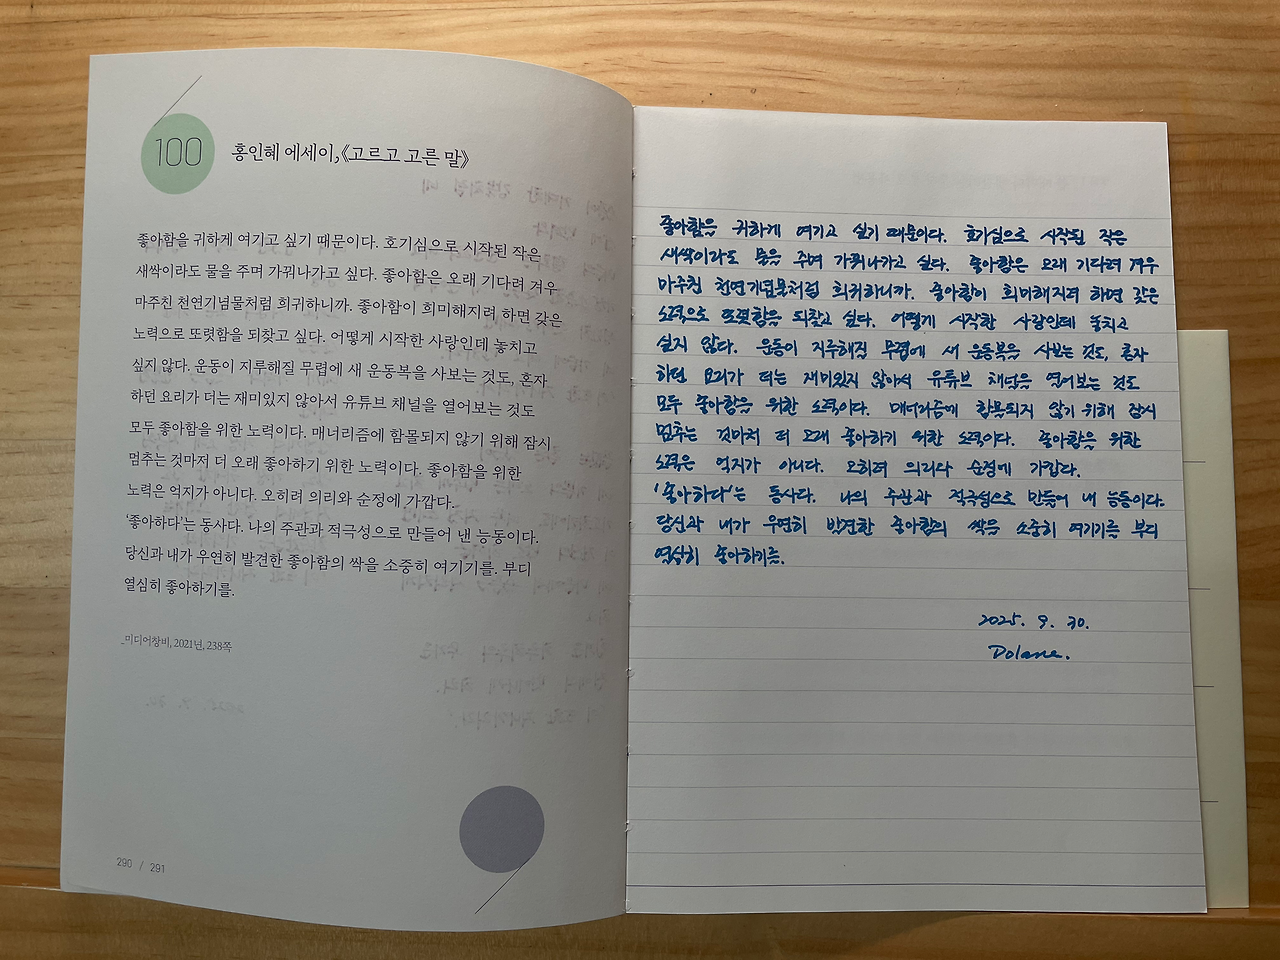 100
홍인혜 에세이,《고르고 고른 말》
좋아함을 귀하게 여기고 싶기 때문이다. 호기심으로 시작된 작은
새싹이라도 물을 주며 가꿔나가고 싶다. 좋아함은 오래 기다려 겨우
마주친 천연기념물처럼 희귀하니까. 좋아함이 희미해지려 하면 갖은
노력으로 또렷함을 되찾고 싶다. 어떻게 시작한 사랑인데 놓치고
싶지 않다. 운동이 지루해질 무렵에 새 운동복을 사보는 것도, 혼자
하던 요리가 더는 재미있지 않아서 유튜브 채널을 열어보는 것도
모두 좋아함을 위한 노력이다. 매너리즘에 함몰되지 않기 위해 잠시
멈추는 것마저 더 오래 좋아하기 위한 노력이다. 좋아함을 위한
노력은 억지가 아니다. 오히려 의리와 순정에 가깝다.
‘좋아하다’는 동사다. 나의 주관과 적극성으로 만들어 낸 능동이다.
당신과 내가 우연히 발견한 좋아함의 싹을 소중히 여기기를. 부디
열심히 좋아하기를.
_미디어창비, 2021년, 238쪽
290 / 291
좋아함을 귀하게 여기고 싶기 때문이다. 호기심으로 시작된 작은
새싹이라도 물을 주며 가꿔나가고 싶다. 좋아함은 오래 기다려 겨우
마주친 천연기념물처럼 희귀하니까. 좋아함이 희미해지려 하면 갖은
노력으로 또렷함을 되찾고 싶다. 어떻게 시작한 사랑인데 놓치고
싶지 않다. 운동이 지루해질 무렵에 새 운동복을 사보는 것도, 혼자
하던 요리가 더는 재미있지 않아서 유튜브 채널을 열어보는 것도
모두 좋아함을 위한 노력이다. 매너리즘에 함몰되지 않기 위해 잠시
멈추는 것마저 더 오래 좋아하기 위한 노력이다. 좋아함을 위한
노력은 억지가 아니다. 오히려 의리와 순정에 가깝다.
‘좋아하다’는 동사다. 나의 주관과 적극성으로 만들어 내 능동이다.
당신과 내가 우연히 발견한 좋아함의 싹을 소중히 여기기를 부디
열심히 좋아하기를.
2025. 9. 30.
Dolane.